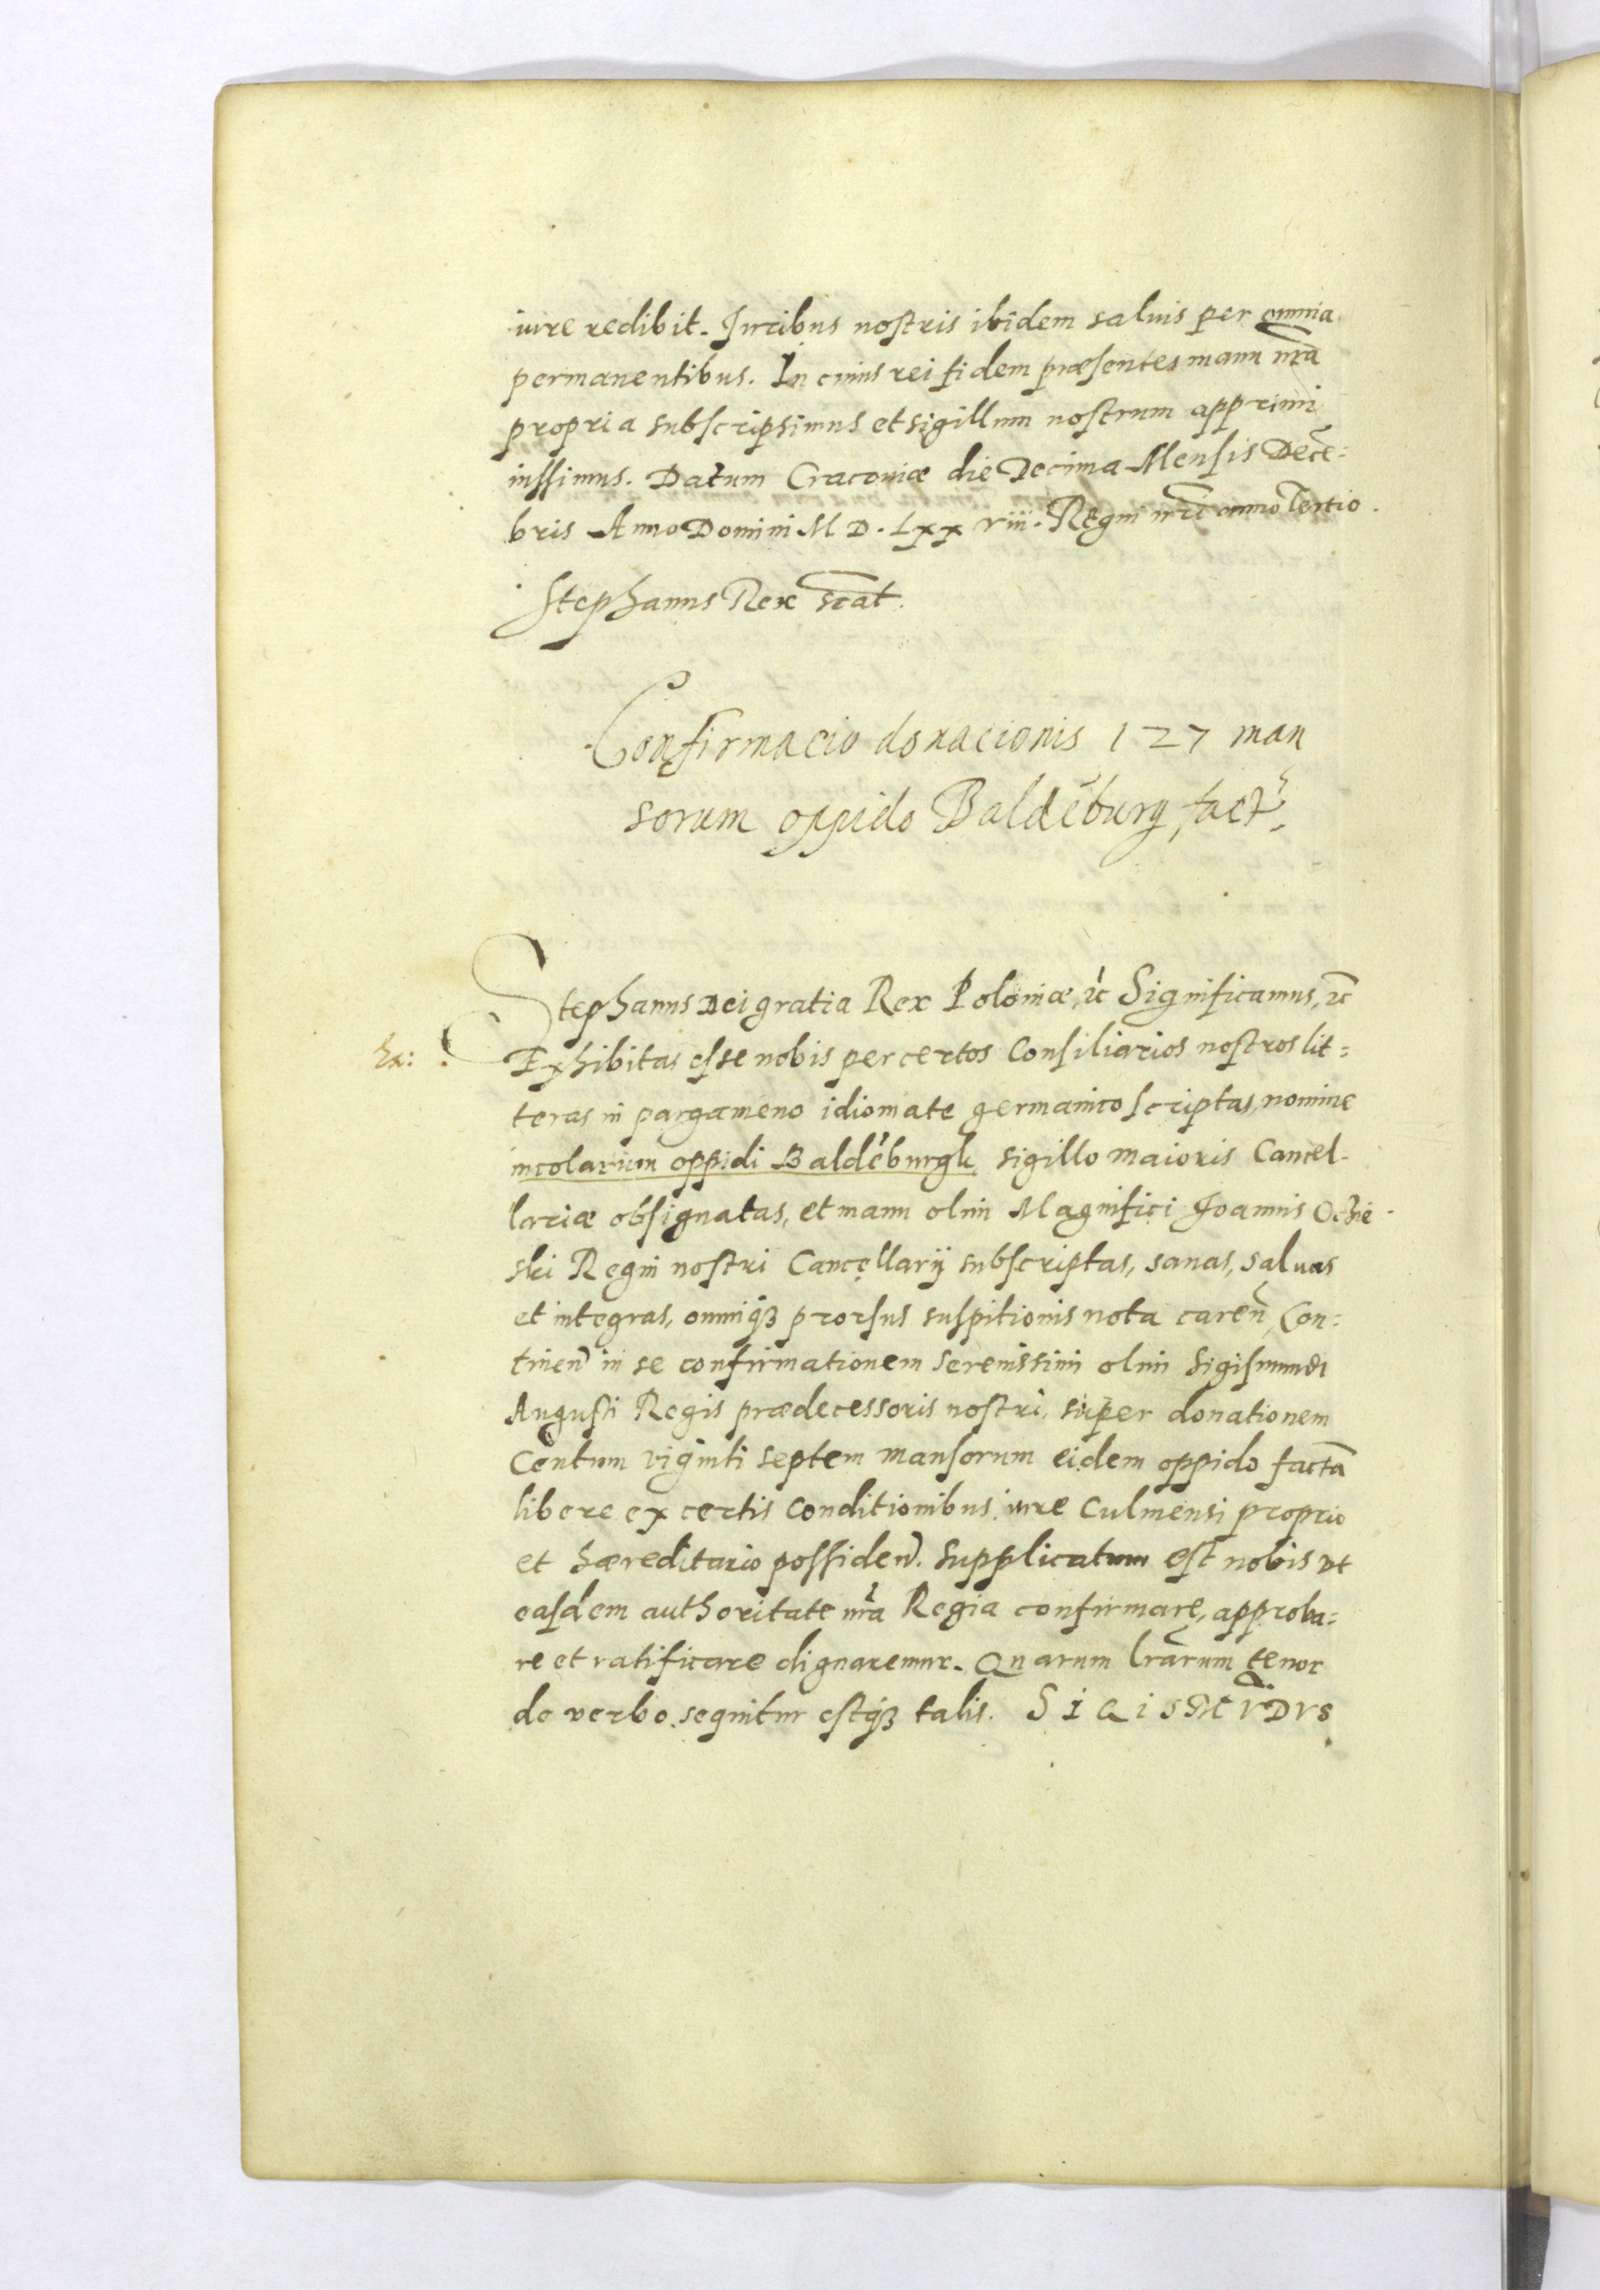 iure redibit. Iuribus nostris ibidem saluis per omnia
permanentibus. In cuius rei fidem præsentes manu nr̃a
propria subscripsimus et sigillum nostrum apprimi
iussimus. Datum Cracoviæ die Decima Mensis Decẽ=
bris Anno Domini M D. Lxx viii. Regni nr̃i anno Tertio.
Stephanus Rex sc̃at.
Confirmacio donacionis 127 man
sorum oppido Baldẽburg fact.
Stephanus Dei gratia Rex Poloniæ, ⁊c Significamus, ⁊c
Exhibitas esse nobis per certos Consiliarios nostros lit=
teras in pargameno idiomate germanico scriptas, nomine
incolarum oppidi Baldẽburgk sigillo maioris Cancel-
lariæ obsignatas, et manu olim Magnifici Joannis Oczie-
ski Regni nostri Cancellarij subscriptas, sanas, saluas
et integras, omniq́ꝫ prorsus suspitionis nota careñ, Con=
tineñ in se confirmationem Serenissimi olim Sigismundi
Augusti Regis prædecessoris nostri, super donationem
Centum viginti septem mansorum eidem oppido factã
libere ex certis Conditionibus iure Culmensi proprio
et hæreditario possideñ. Supplicatum est nobis vt
easdem authoritate nr̃a Regia confirmare, approba=
re et ratificare dignaremur. Quarum lr̃arum tenor
de verbo sequitur estq́ꝫ talis. SIGISMVDVS